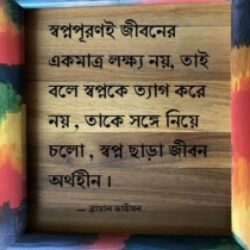 স্বপ্নপূরণই জীবনের
একমাত্র লক্ষ্য নয়, তাই
বলে স্বপ্নকে ত্যাগ করে
নয় , তাকে সঙ্গে নিয়ে
চলো , স্বপ্ন ছাড়া জীবন
অর্থহীন ।
— ব্রায়ান ডাইসন